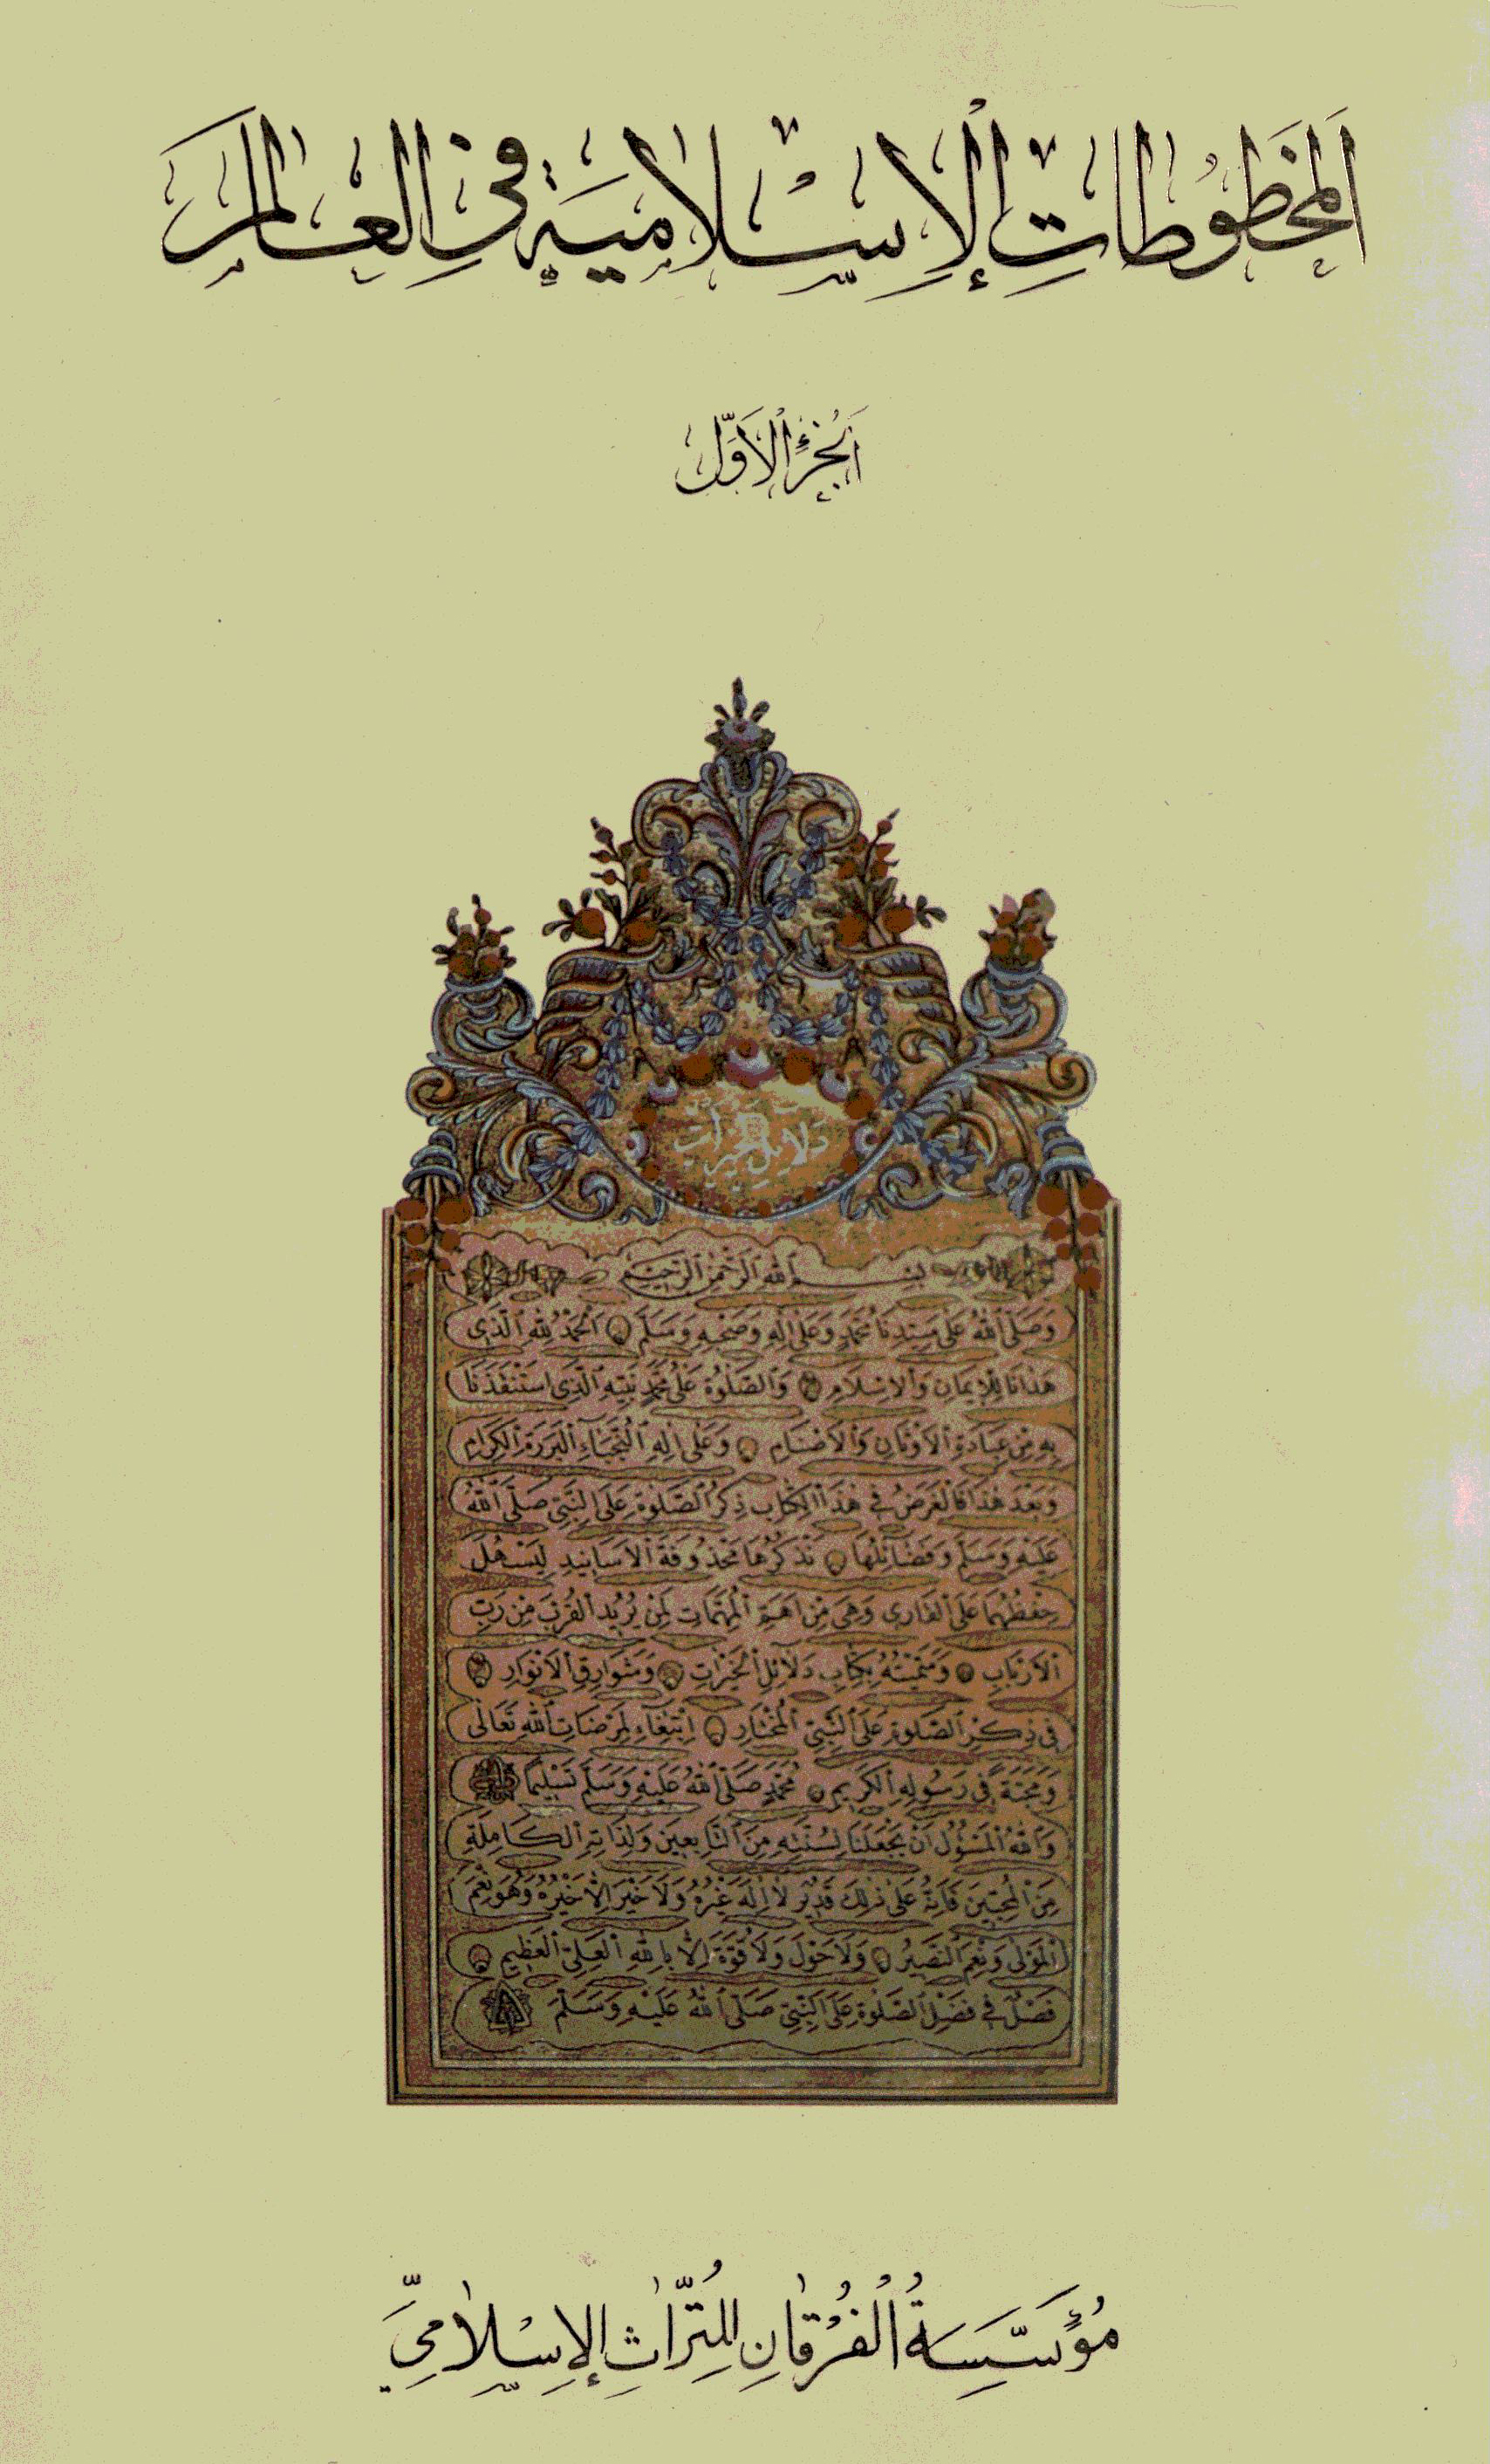 المخطوطات الإسلامية في العالم
الجزء الأول
دلائل الخيرات
بسم الله الرحمن الرحيم
وصلى الله على سيدنا محمد وعلى آله وصحبه وسلم الحمد لله الذي
هدانا للإيمان والإسلام والصلوة على محمد نبيه الذي استنقذنا
به من عبادة الأوثان والأصنام وعلى آله النجباء البررة الكرام
وبعد هذا فالغرض في هذا الكتاب ذكر الصلوة على النبي صلى الله
عليه وسلم وفضائلها نذكرها محذوفة الأسانيد ليسهل
حفظها على القاري وهي من اهم المهمات لمن يريد القرب من رب
الأرباب وسميته بكتاب دلائل الخيرات وشوارق الأنوار
في ذكر الصلوة على النبي المختار ابتغاء لمرضات الله تعالى
ومحبة في رسوله الكريم محمد صلى الله عليه وسلم تسليما
والله المسؤل أن يجعلنا لسنته من التابعين ولذاته الكاملة
من المحبين فانه على ذلك قدير لا إله غيره ولا خير إلا خيره وهو نعم
المولى ونعم النصير ولا حول ولا قوة إلا بالله العلي العظيم
فصل في فضل الصلوة على النبي صلى الله عليه وسلم
مؤسسة الفرقان للتراث الإسلامي